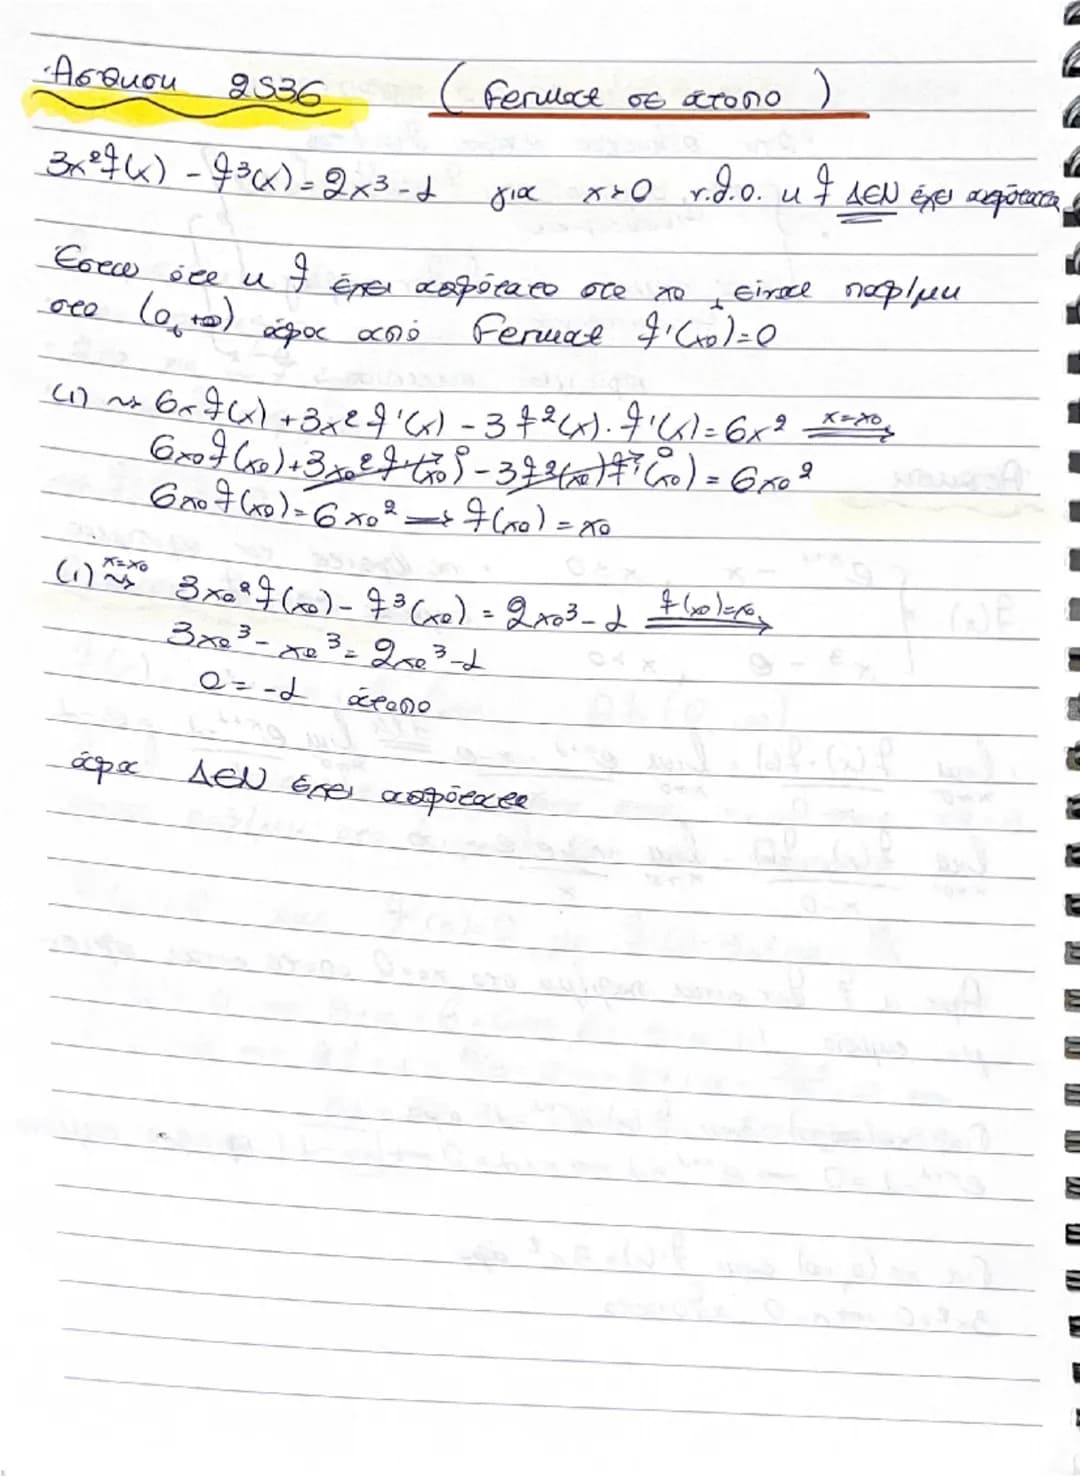 Άσκηση 2S36 (Fermat σε άτοπο)
3x²f(x) - f³(x) = 2x³-1 για x>0 ν.δ.ο. η f ΔΕΝ έχει ακρότατα
Έστω ότι η f έχει ακρότατο στο x₀, είναι παρ/μη
στο (0,+∞) άρα από Fermat f'(x₀)=0
(1) ⇝ 6xf(x) + 3x²f'(x) - 3f²(x)·f'(x) = 6x² x=x₀ ⇒
6x₀f(x₀) + 3x₀²f'(x₀)⁰ - 3f²(x₀)f'(x₀)⁰ = 6x₀²
6x₀f(x₀) = 6x₀² ⟹ f(x₀) = x₀
(1) x=x₀ ⇝ 3x₀²f(x₀) - f³(x₀) = 2x₀³-1 f(x₀)=x₀ ⟹
3x₀³ - x₀³ = 2x₀³-1
0 = -1 άτοπο
άρα ΔΕΝ έχει ακρότατα